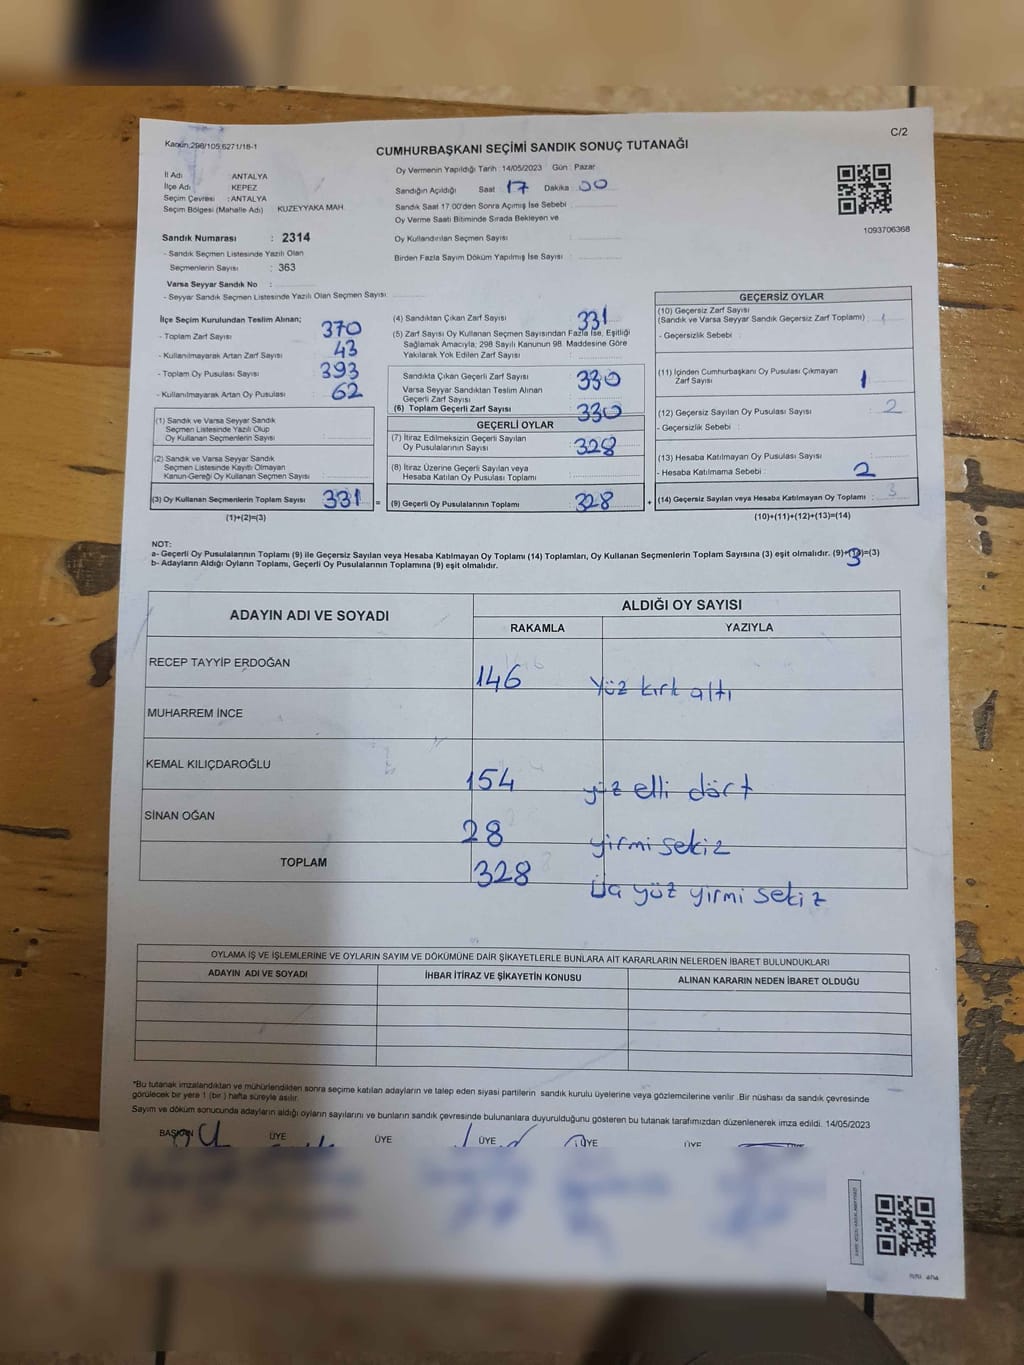 C/2
Kanun:298/105,6271/18-1
CUMHURBAŞKANI SEÇİMİ SANDIK SONUÇ TUTANAĞI
İl Adı : ANTALYA
İlçe Adı : KEPEZ
Seçim Çevresi : ANTALYA
Seçim Bölgesi (Mahalle Adı) KUZEYYAKA MAH.
Oy Vermenin Yapıldığı Tarih : 14/05/2023 Gün : Pazar
Sandığın Açıldığı Saat 17 Dakika 00
Sandık Saat 17:00'den Sonra Açımış İse Sebebi :
Oy Verme Saati Bitiminde Sırada Bekleyen ve
Oy Kullandırılan Seçmen Sayısı :
Birden Fazla Sayım Döküm Yapılmış İse Sayısı :
1093706368
Sandık Numarası : 2314
- Sandık Seçmen Listesinde Yazılı Olan
Seçmenlerin Sayısı : 363
Varsa Seyyar Sandık No :
- Seyyar Sandık Seçmen Listesinde Yazılı Olan Seçmen Sayısı
İlçe Seçim Kurulundan Teslim Alınan;
- Toplam Zarf Sayısı : 370
- Kullanılmayarak Artan Zarf Sayısı : 43
- Toplam Oy Pusulası Sayısı : 393
- Kullanılmayarak Artan Oy Pusulası : 62
(1) Sandık ve Varsa Seyyar Sandık
Seçmen Listesinde Yazılı Olup
Oy Kullanan Seçmenlerin Sayısı :
(2) Sandık ve Varsa Seyyar Sandık
Seçmen Listesinde Kayıtlı Olmayan
Kanun Gereği Oy Kullanan Seçmen Sayısı :
(3) Oy Kullanan Seçmenlerin Toplam Sayısı 331 =
(1)+(2)=(3)
(4) Sandıktan Çıkan Zarf Sayısı : 331
(5) Zarf Sayısı Oy Kullanan Seçmen Sayısından Fazla İse, Eşitliği
Sağlamak Amacıyla; 298 Sayılı Kanunun 98. Maddesine Göre
Yakılarak Yok Edilen Zarf Sayısı :
Sandıkta Çıkan Geçerli Zarf Sayısı : 330
Varsa Seyyar Sandıktan Teslim Alınan
Geçerli Zarf Sayısı :
(6) Toplam Geçerli Zarf Sayısı : 330
GEÇERLİ OYLAR
(7) İtiraz Edilmeksizin Geçerli Sayılan
Oy Pusulalarının Sayısı : 328
(8) İtiraz Üzerine Geçerli Sayılan veya
Hesaba Katılan Oy Pusulası Toplamı :
(9) Geçerli Oy Pusulalarının Toplamı : 328 +
GEÇERSİZ OYLAR
(10) Geçersiz Zarf Sayısı
(Sandık ve Varsa Seyyar Sandık Geçersiz Zarf Toplamı) : 1
- Geçersizlik Sebebi :
(11) İçinden Cumhurbaşkanı Oy Pusulası Çıkmayan
Zarf Sayısı : 1
(12) Geçersiz Sayılan Oy Pusulası Sayısı : 2
- Geçersizlik Sebebi :
(13) Hesaba Katılmayan Oy Pusulası Sayısı :
- Hesaba Katılmama Sebebi : 2
(14) Geçersiz Sayılan veya Hesaba Katılmayan Oy Toplamı : 3
(10)+(11)+(12)+(13)=(14)
NOT:
a- Geçerli Oy Pusulalarının Toplamı (9) ile Geçersiz Sayılan veya Hesaba Katılmayan Oy Toplamı (14) Toplamları, Oy Kullanan Seçmenlerin Toplam Sayısına (3) eşit olmalıdır. (9)+(14)=(3)
3
b- Adayların Aldığı Oyların Toplamı, Geçerli Oy Pusulalarının Toplamına (9) eşit olmalıdır.
ADAYIN ADI VE SOYADI
ALDIĞI OY SAYISI
RAKAMLA YAZIYLA
RECEP TAYYİP ERDOĞAN 146 yüz kırk altı
MUHARREM İNCE
KEMAL KILIÇDAROĞLU 154 yüz elli dört
SİNAN OĞAN 28 yirmi sekiz
TOPLAM 328 Üç yüz yirmi sekiz
OYLAMA İŞ VE İŞLEMLERİNE VE OYLARIN SAYIM VE DÖKÜMÜNE DAİR ŞİKAYETLERLE BUNLARA AİT KARARLARIN NELERDEN İBARET BULUNDUKLARI
ADAYIN ADI VE SOYADI İHBAR İTİRAZ VE ŞİKAYETİN KONUSU ALINAN KARARIN NEDEN İBARET OLDUĞU
*Bu tutanak imzalandıktan ve mühürlendikten sonra seçime katılan adayların ve talep eden siyasi partilerin sandık kurulu üyelerine veya gözlemcilerine verilir. Bir nüshası da sandık çevresinde
görülecek bir yere 1 (bir) hafta süreyle asılır.
Sayım ve döküm sonucunda adayların aldığı oyların sayılarını ve bunların sandık çevresinde bulunanlara duyurulduğunu gösteren bu tutanak tarafımızdan düzenlenerek imza edildi. 14/05/2023
BAŞKAN ÜYE ÜYE ÜYE ÜYE ÜYE ÜYE